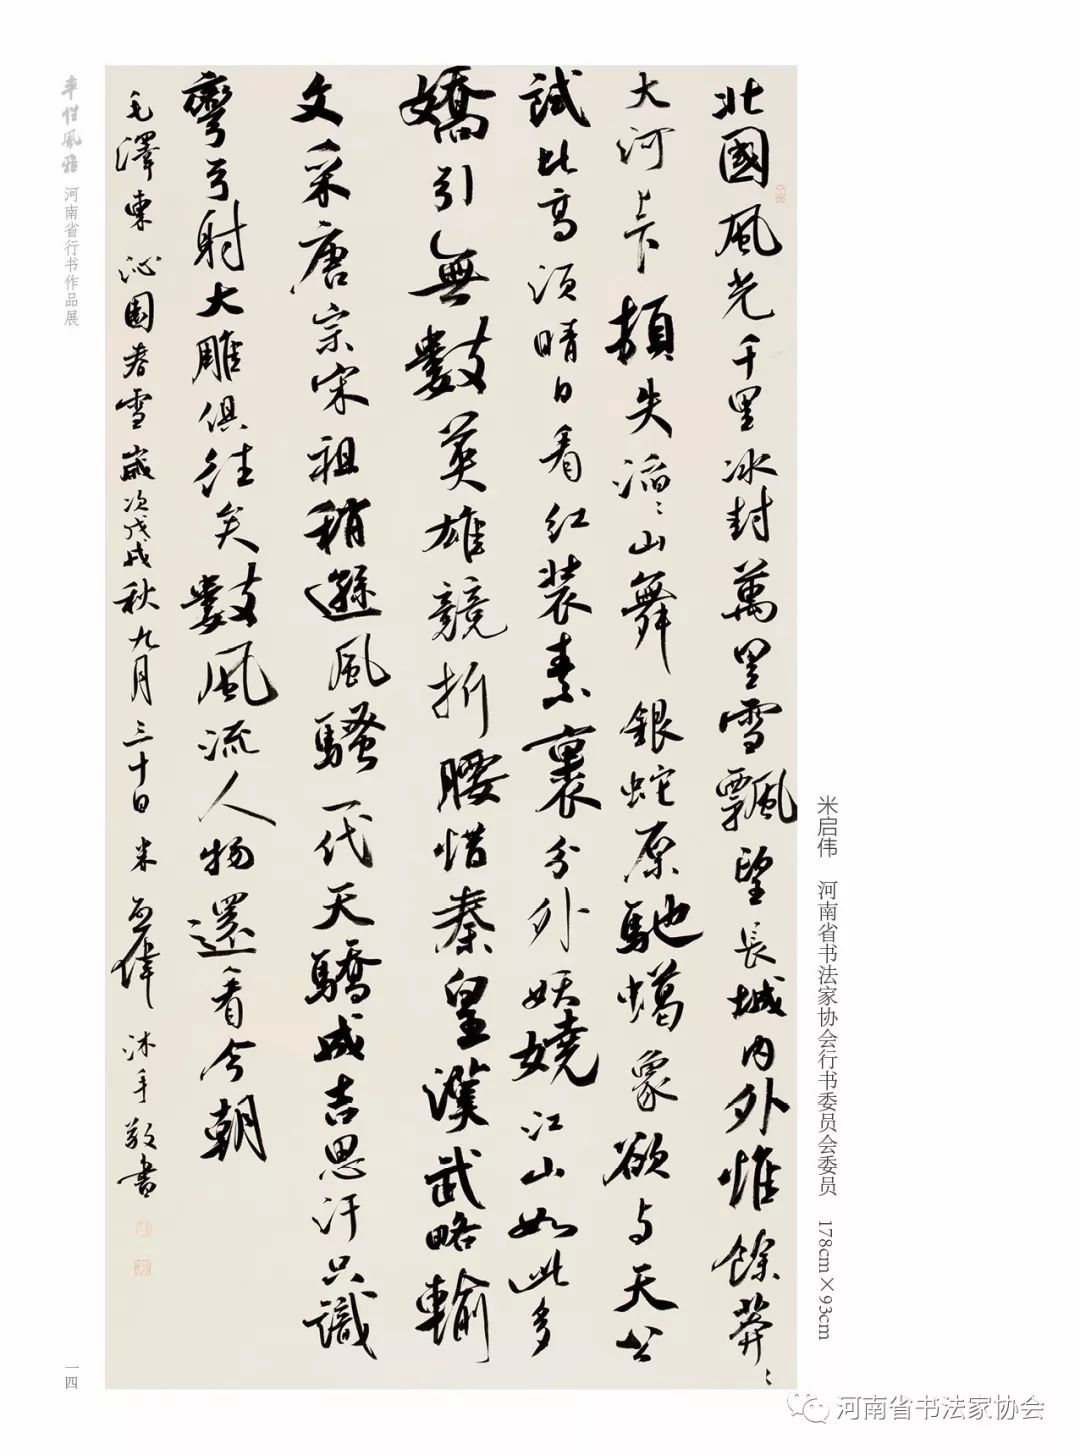 米启伟 河南省书法家协会行书委员会委员 178cm×93cm
北國風光千里冰封萬里雪飄望長城内外惟餘莽〻
大河上下頓失滔〻山舞銀蛇原馳蠟象欲与天公
試比高須晴日看红装素裹分外妖嬈江山如此多
嬌引無數英雄競折腰惜秦皇漢武略輸
文采唐宗宋祖稍遜風騷一代天驕成吉思汗只識
彎弓射大雕俱往矣數風流人物還看今朝
毛澤東沁園春雪歲次戊戌秋九月三十日米啟偉沐手敬書
風雅 河南省行书作品展
一四
河南省书法家协会